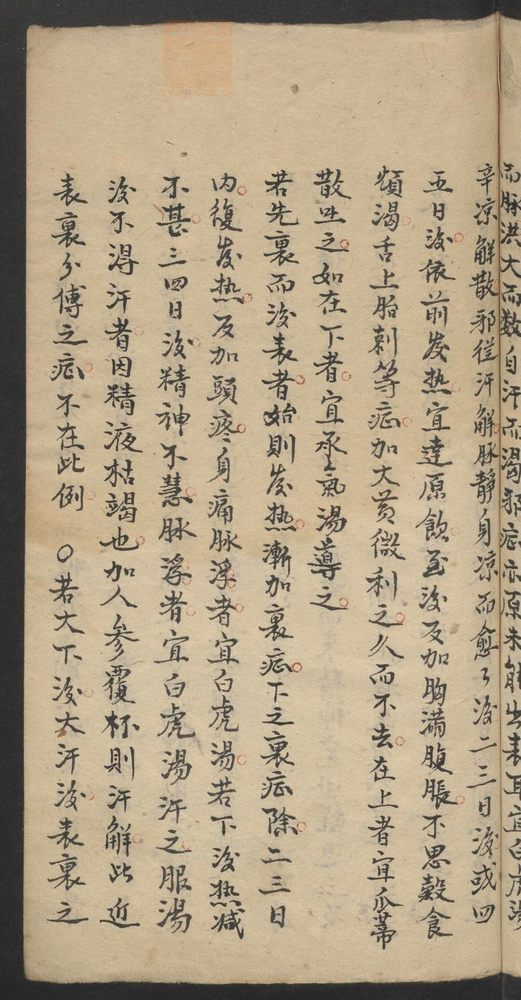 而脉洪大而数自汗而渴邪症亦原未解出表耳宜白虎湯
辛凉解散邪從汗解脉靜身凉而愈了後二三日後或四
五日後依前發热宜達原飲至後反加胸满腹脹不思穀食
煩渴舌上胎刺等症加大黄微利之久而不去在上者宜瓜蒂
散吐之如在下者宜承氣湯導之
若先裏而後表者始則發热漸加裏症下之裏症除二三日
内復發热反加頭疼身痛脉浮者宜白虎湯若下後热减
不甚三四日後精神不慧脉浮者宜白虎湯汗之服湯
後不得汗者因精液枯竭也加人參覆杯則汗解此近
表裏分傳之症不在此例　○若大下後大汗後表裏之